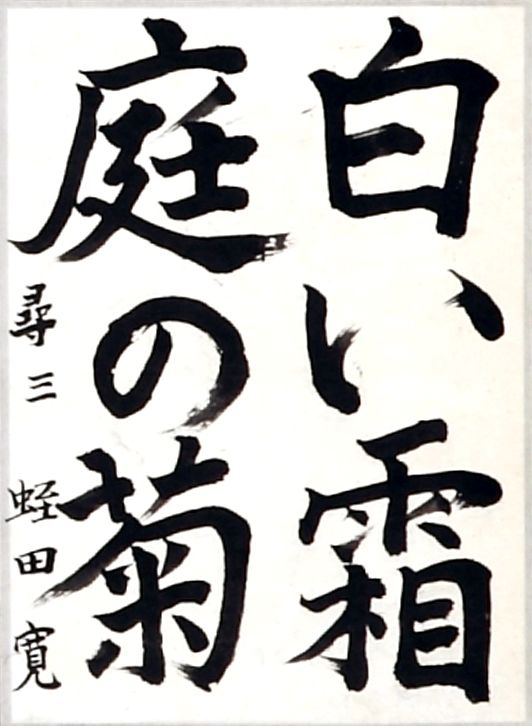 白い霜
庭の菊
尋三 蛭田寛